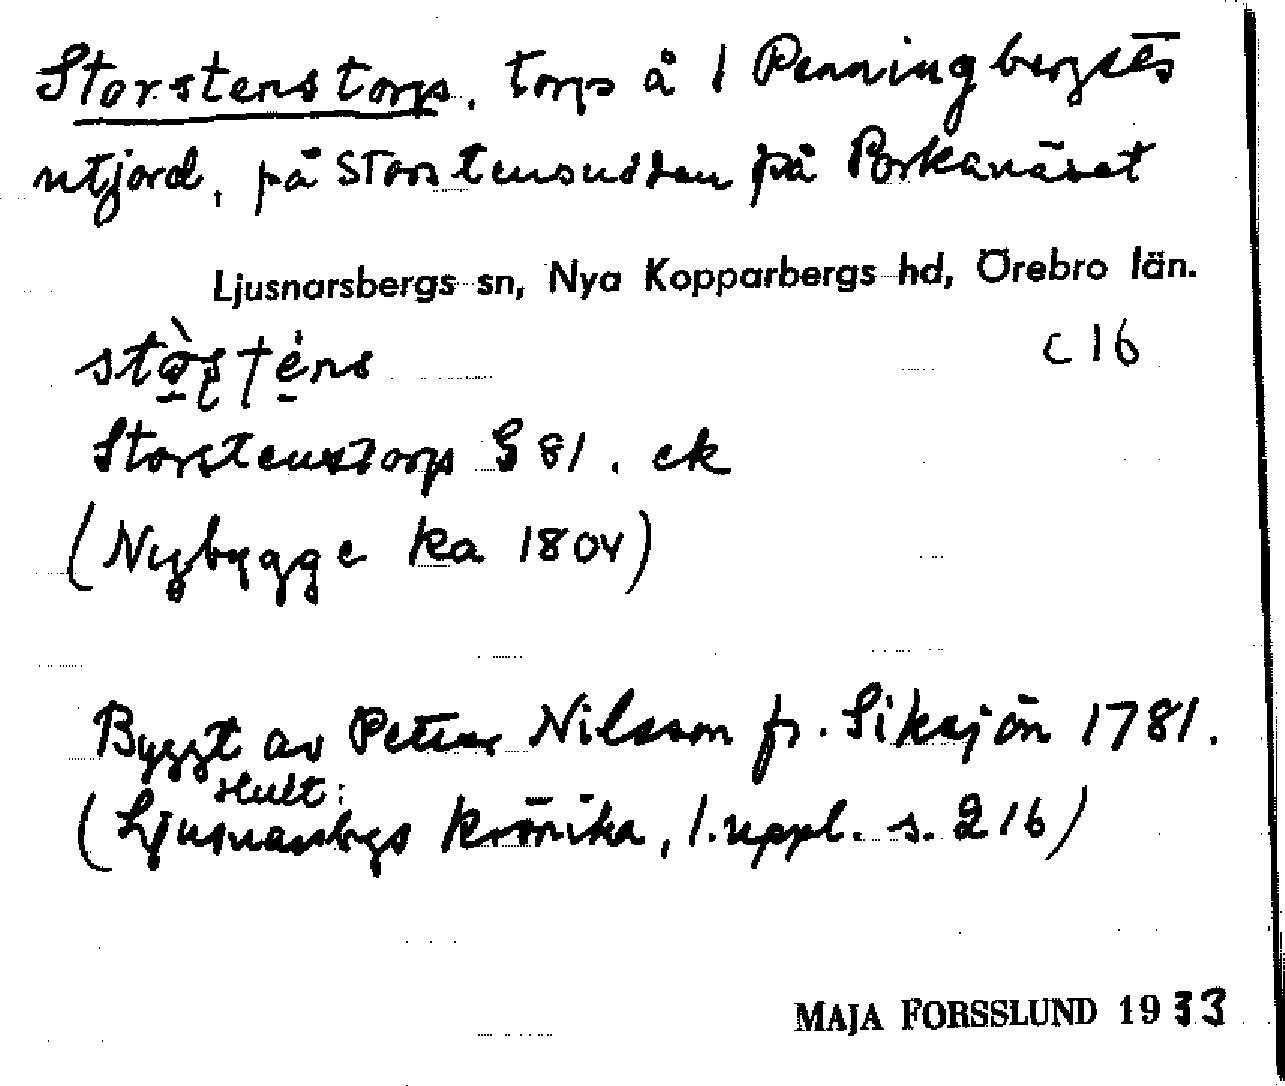 Storstenstorp, torp å 1 Penningbergsås
utjord, på Storstensudden på Porkanäset
Ljusnarsbergs sn, Nya Kopparbergs hd, Örebro län.
c 16
Storstenstorp G 81. ek
(Nybygge ka 1800)
Byggt av Petrus Nilsson fr. Siksjön 1781.
Hult:
(Ljusnarsbgs krönika, 1. uppl. s. 216)
MAJA FORSSLUND 1933